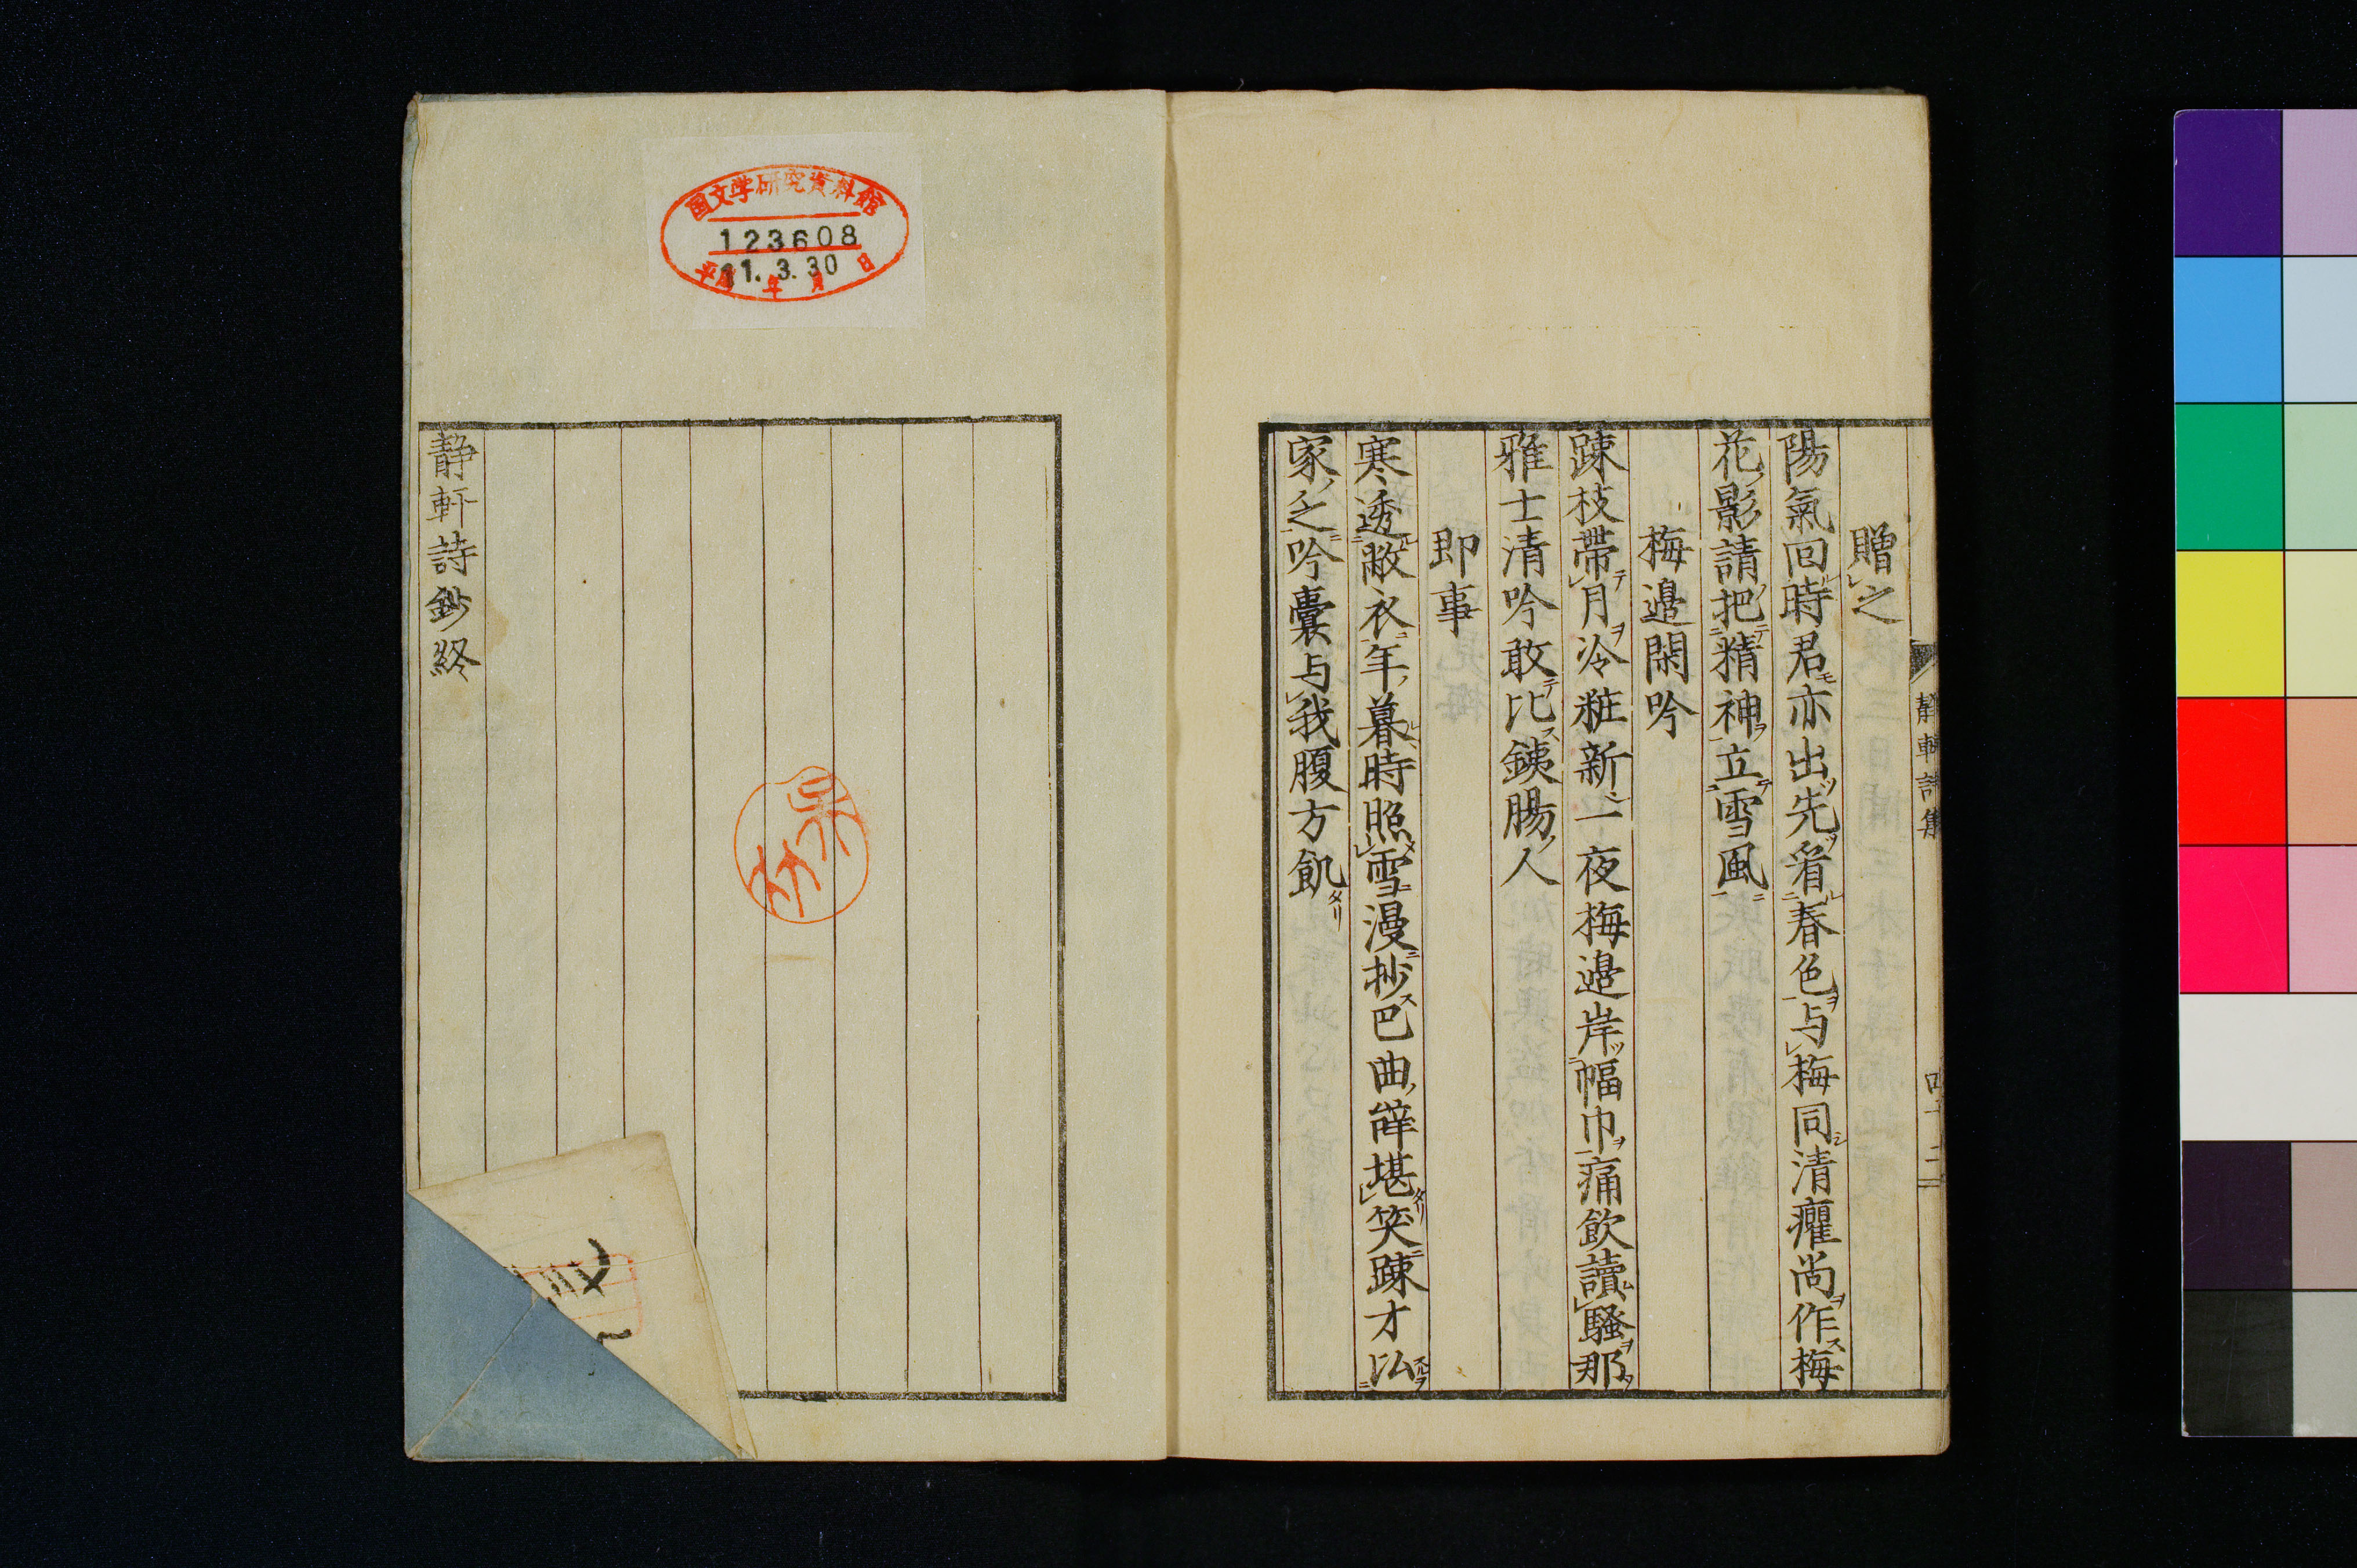 贈之
陽氣回時君亦出先看春色与梅同清癯尚作梅
花影請把精神立雪風
梅邉閑吟
踈枝帶月冷粧新一夜梅邉岸幅巾痛飲讀騷那
雅士清吟敢比銕腸人
即事
寒透敝衣年暮時照雪漫抄巴曲辞堪笑踈才仏
家之吟囊与我腹方飢
静軒詩集
四十二
静軒詩鈔終
国文学研究資料館
123608
平成11.3.30
年月日